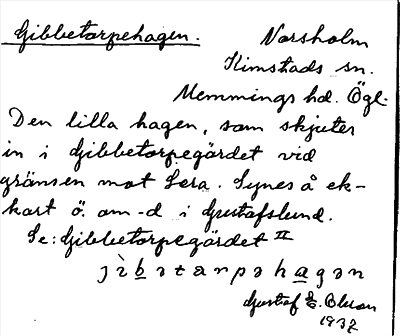 Gibbetorpehagen. Norsholm
Kimstads sn.
Memmings hd. Ögl.
Den lilla hagen, som skjuter
in i Gibbetorpegärdet vid
gränsen mot Lera. Synes å ek-
kart ö. om -d i Gustafslund.
Se: Gibbetorpegärdet II
jìbətarpəhagən
Gustaf Olsson
1937